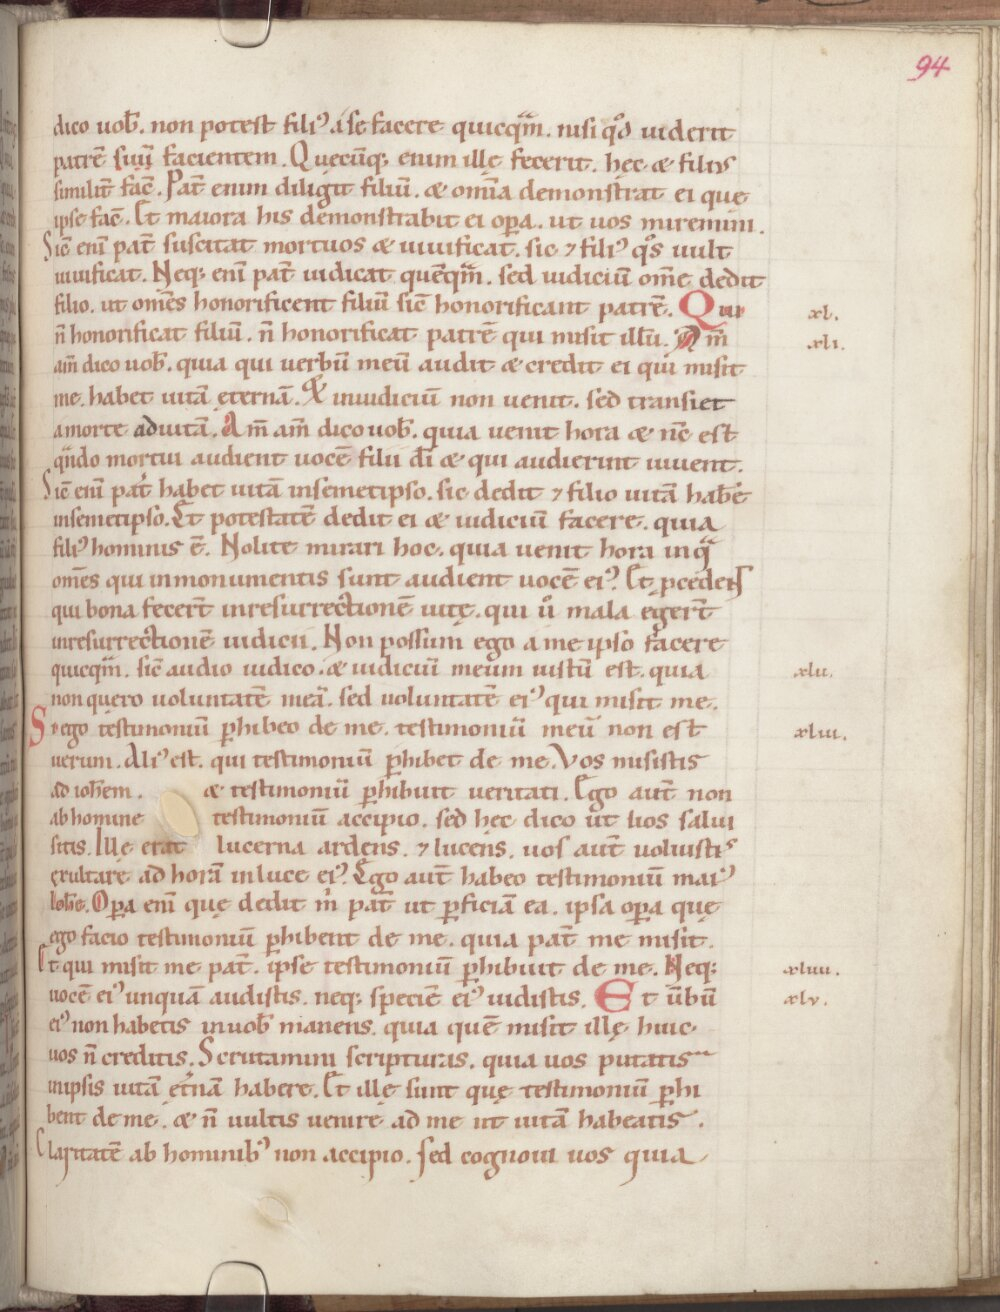 94
dico uob̄. non potest filiꝰ a se facere quicqᵃm̄. nisi qᵒd uiderit
patrē suū facientem. Quecūq; enim illę fecerit. hec & filius
similit̄ fac̄. Pat̄ enim diligit filiū. & omīa demonstrat ei que
ipse fac̄. Et maiora his demonstrabit ei oꝑa. ut uos miremini.
Sic̄ eni pat̄ suscitat mortuos & uiuificat. sic ⁊ filiꝰ qᵒs uult
uiuificat. Neq; eni pat̄ iudicat quēqᵃm̄. sed iudiciū om̄e dedit
filio. ut om̄es honorificent filiū sic̄ honorificant patrē. Qui
xl.
n̄ honorificat filiū. n̄ honorificat patrē qui misit illū. Am̄
xli.
am̄ dico uob̄. quia qui uerbū meū audit & credit ei qui misit
me. habet uitā ęternā. & iniudiciū non uenit. sed transiet
amorte aduitā. Am̄ am̄ dico uob̄. quia uenit hora & nc̄ est
qn̄do mortui audient uocē filii dī & qui audierint uiuent.
Sic̄ eni pat̄ habet uitā insemetipso. sic dedit ⁊ filio uitā hab̄e
insemetipso. Et potestatē dedit ei & iudiciū facere. quia
filiꝰ hominis ē. Nolite mirari hoc. quia uenit hora in qᵃ
om̄es qui inmonumentis sunt audient uocē eiꝰ. Et ꝓcedent
qui bona fecert̄ inresurrectionē uitę. qui ū mala egert̄
inresurrectionē iudicii. Non possum ego a me ipso facere
quicqᵃm̄. sic̄ audio iudico. & iudiciū meum iustū est. quia
xlii.
non quero uoluntatē meā. sed uoluntatē eiꝰ qui misit me.
Si ego testimoniū ꝑhibeo de me. testimoniū meū non est
xliii.
uerum. Aliꝰ est. qui testimoniū ꝑhibet de me. Vos misistis
ad ioh̄em. & testimoniū ꝑhibuit ueritati. Ego aut̄ non
ab homine testimoniū accipio. sed hec dico ut uos salui
sitis. Ille erat lucerna ardens. ⁊ lucens. uos aut̄ uoluistis
exultare ad horā inluce eiꝰ. Ego aut̄ habeo testimoniū maiꝰ
ioh̄e. Oꝑa eni quę dedit m̄ pat̄ ut ꝑficiā ea. ipsa oꝑa quę
ego facio testimoniū ꝑhibent de me. quia pat̄ me misit.
Et qui misit me pat̄. ipse testimoniū ꝑhibuit de me. Neq;
xliiii.
uocē eiꝰ unquā audistis. neq; speciē eiꝰ uidistis. Et ūbū
xlv.
eiꝰ non habetis in uob̄ manens. quia quē misit illę huic
uos n̄ creditis. Scrutamini scripturas. quia uos putatis
inipsis uitā et̄nā habere. Et ille sunt quę testimoniū ꝑhi
bent de me. & n̄ uultis uenire ad me ut uitā habeatis.
Claritatē ab hominibꝰ non accipio. sed cognoui uos quia